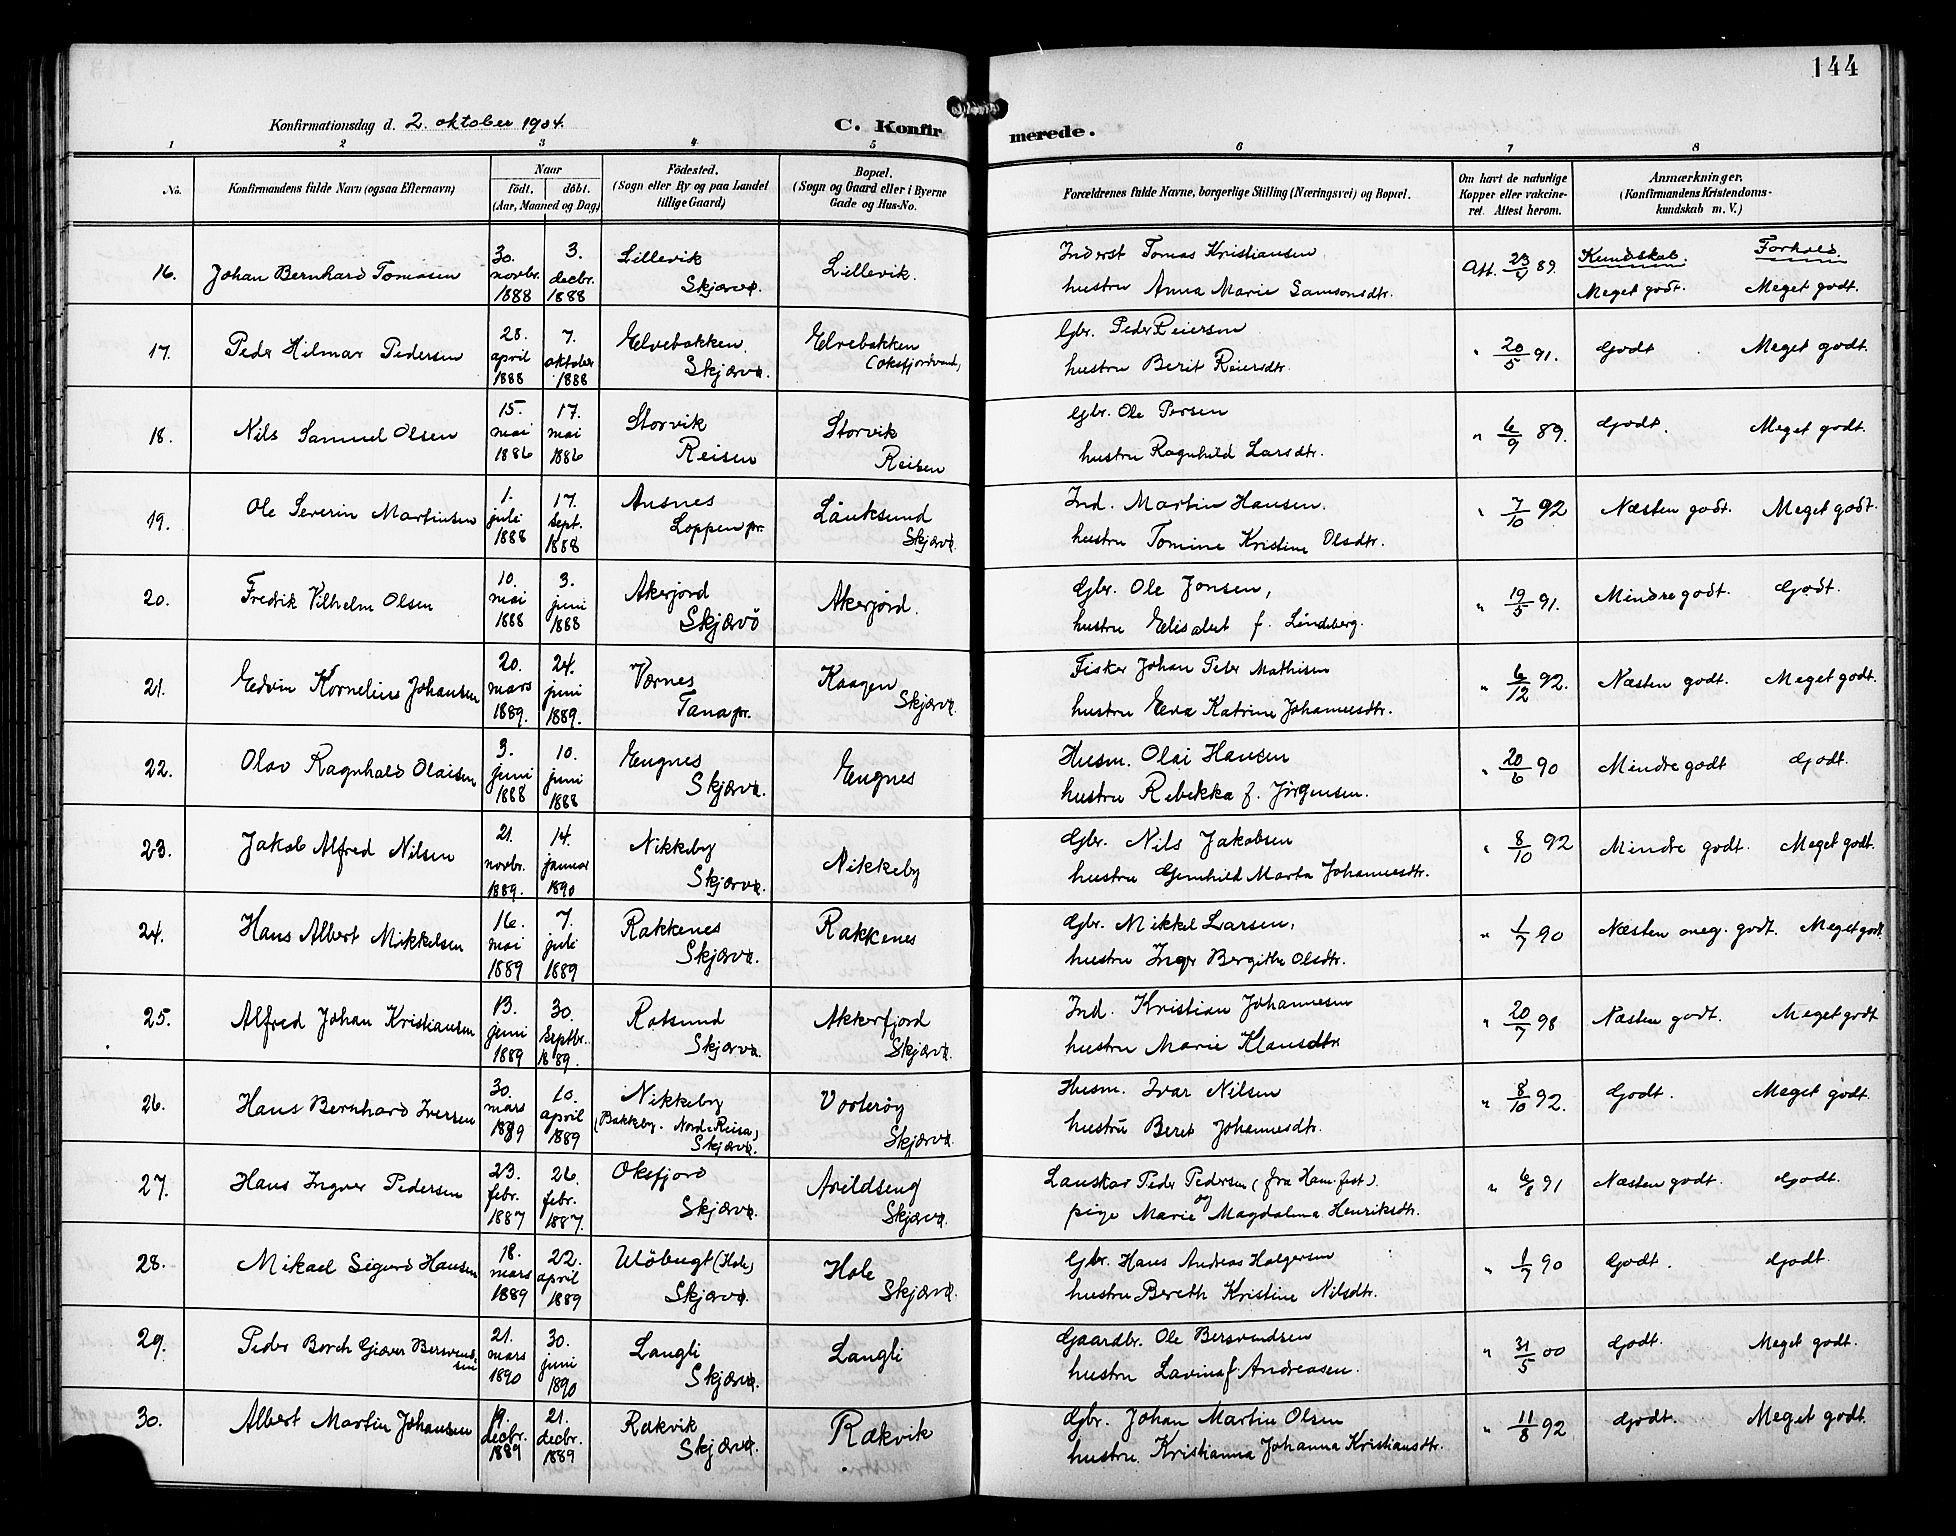 144
Konfirmationsdag d. 2. oktober 1904.
C. Konfirmerede.
1 2 3 4 5 6 7 8
No.
Konfirmandens fulde Navn (ogsaa Efternavn)
Naar
födt. döbt.
(Aar, Maaned og Dag)
Födested.
(Sogn eller By og paa Landet
tillige Gaard)
Bopæl.
(Sogn og Gaard eller i Byerne
Gade og Hus-No.
Forældrenes fulde Navne, borgerlige Stilling (Næringsvei) og Bopæl.
Om havt de naturlige
Kopper eller vakcine-
ret. Attest herom.
Anmærkninger.
(Konfirmandens Kristendoms-
kundskab m. V.)
Kundskab. Forhold.
16. Johan Bernhard Tomasen 30. novbr. 1888 3. decbr. 1888 Lillevik Skjærvø. Lillevik.
Inderst Tomas Kristiansen
hustru Anna Marie Samsonsdtr.
Att. 23/4 89. Meget godt. Meget godt.
17. Peder Hilmar Pedersen 28. april 1888 7. oktober 1888 Elvebakken Skjærvø. Elvebakken (oksfjordvand)
Gbr. Peder Reiersen
hustru Berit Reiersdtr.
" 20/5 91. Godt Meget godt.
18. Nils Samuel Olsen 15. mai 1886 17. mai 1886 Storvik Reisen Storvik Reisen
Gbr. Ole Persen
hustru Ragnhild Larsdtr.
" 6/9 89. Godt. Meget godt.
19. Ole Severin Martinsen 1. juli 1888 17. sept. 1888 Ansnes Loppen pr. Lauksund Skjærvø.
Ind. Martin Hansen.
hustru Tomine Kristine Olsdtr.
" 7/10 92 Næsten godt. Meget godt.
20. Fredrik Vilhelm Olsen 10. mai 1888 3. juni 1888 Akerjord Skjærvö Akerjord.
Gbr. Ole Jonsen,
hustru Elisabet f. Lindberg.
" 19/5 91. Mindre godt. Godt.
21. Edvin Kornelius Johansen 20. mars 1889. 24. juni 1889. Værnes Tana pr. Kaagen Skjærvø.
Fisker Johan Peter Mathisen
hustru Eva Katrine Johannesdtr.
" 6/12 92. Næsten godt. Meget godt.
22. Olav Ragnhald Olaisen 3. juni 1888 10. juni 1888 Engnes Skjærvø. Engnes
Husm. Olai Hansen
hustru Rebekka f. Jørgensen.
" 20/6 90 Mindre godt Godt.
23. Jakob Alfred Nilsen 21. novbr. 1889. 14. januar 1890 Nikkeby Skjærvø. Nikkeby
Gbr. Nils Jakobsen
hustru Gunhild Marta Johannesdtr.
" 8/10 92 Mindre godt. Meget godt.
24. Hans Albert Mikkelsen 16. mai 1889 7. juli 1889 Rakkenes Skjærvø. Rakkenes
Gbr. Mikkel Larsen,
hustru Inger Bergithe Olsdtr.
" 1/7 90 Næsten meg. godt. Meget godt.
25. Alfred Johan Kristiansen 13. juni 1889 30. septbr. 1889. Rotsund Skjærvø. Akkerfjord Skjærvø.
Ind. Kristian Johannesen
hustru Marie Klausdtr
" 20/7 98 Næsten godt. Meget godt
26. Hans Bernhard Iversen 30. mars 1889 10. april 1889 Nikkeby (Bakkeby. Nord-Reisa) Skjærvø. Vorterøy Skjærvø.
Husm. Ivar Nilsen
hustru Beret Johannesdtr.
" 8/10 92. Godt. Meget godt.
27. Hans Ingver Pedersen 23. febr. 1887 26. febr. 1887. Oksfjord Skjærvø. Avildseng Skjærvø.
Lauskar Peder Pedersen (fra Ham.fest) og
pige Marie Magdalena Henriksdtr.
" 6/8 91 Næsten godt. Godt.
28. Mikael Sigurd Hansen 18. mars 1889 22. april 1889 Ulöbugt (Hole) Skjærvø. Hole Skjærvø.
Gbr. Hans Andreas Holgersen
hustru Bereth Kristine Nilsdtr.
" 1/7 90 Godt. Godt.
29. Peder Borch Giæver Bersvendsen 21. mars 1890 30. juni 1890 Langli Skjærvø. Langli
Gaardbr. Ole Bersvendsen
hustru Lavina f. Andreasen.
" 31/5 00 Godt. Meget godt.
30. Albert Martin Johansen 19. decbr. 1889 21. decbr. 1889 Rakvik Skjærvø. Rakvik
Gbr. Johan Martin Olsen
hustru Kristianna Johanna Kristiansdtr.
" 11/8 92 Godt. Meget godt.